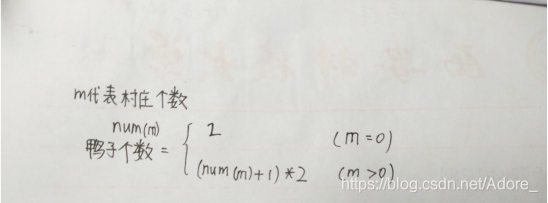 m代表村庄个数
num(m)
鸭子个数 = { 2 (m=0)
(num(m)+1)*2 (m>0)
https://blog.csdn.net/Adore_